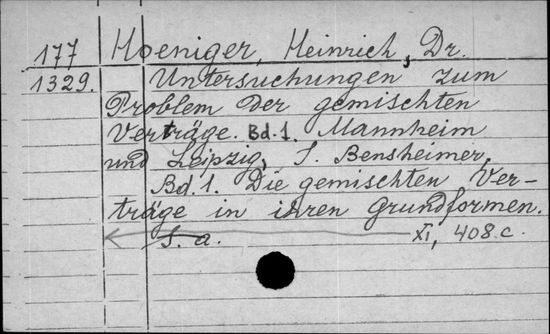 177 Hoeniger, Heinrich, Dr.
1329. Untersuchungen zum
Problem der gemischten
Verträge. Bd. 1. Mannheim
und Leipzig, J. Bensheimer,
Bd. 1. Die gemischten Ver-
träge in ihren Grundformen.
S. a. XI, 408. c.